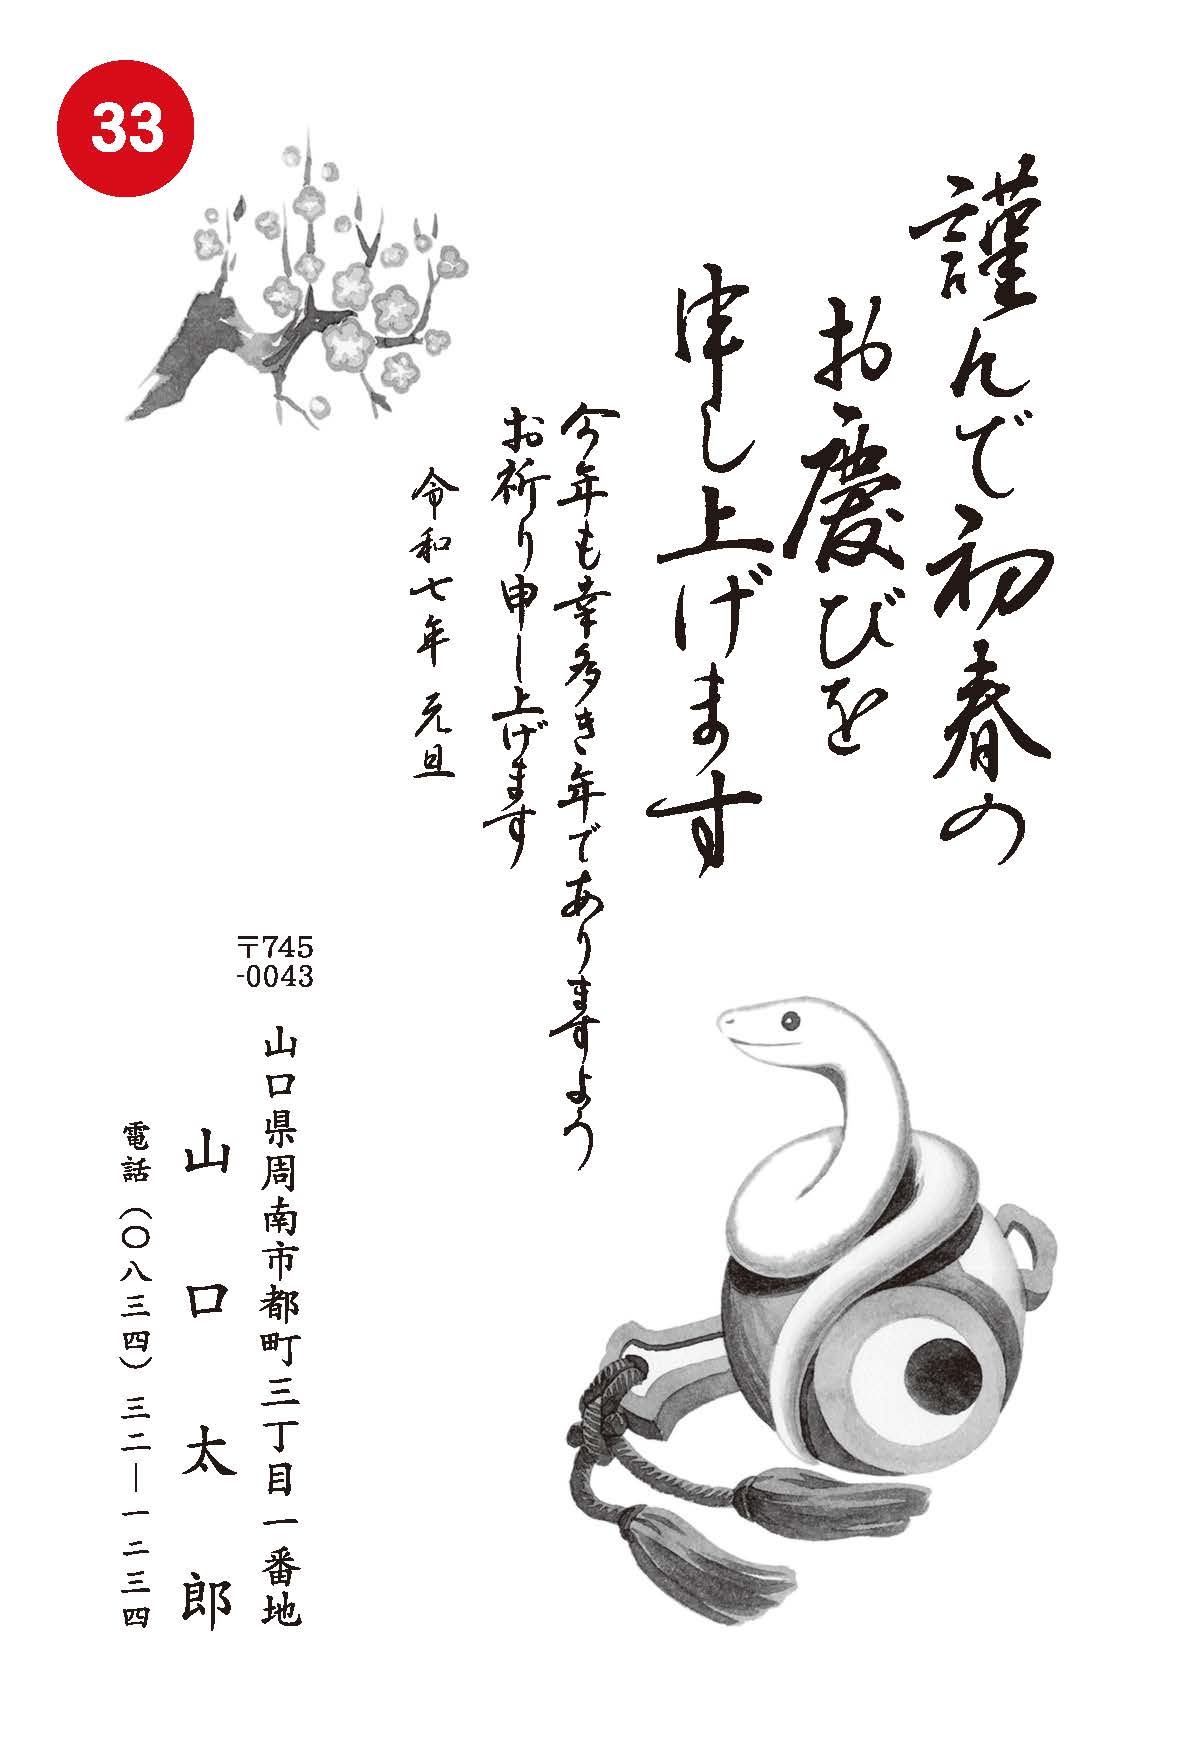 33
謹んで初春の
お慶びを
申し上げます
今年も幸多き年でありますよう
お祈り申し上げます
令和七年 元旦
〒745
-0043
山口県周南市都町三丁目一番地
山口太郎
電話（〇八三四）三二―一二三四